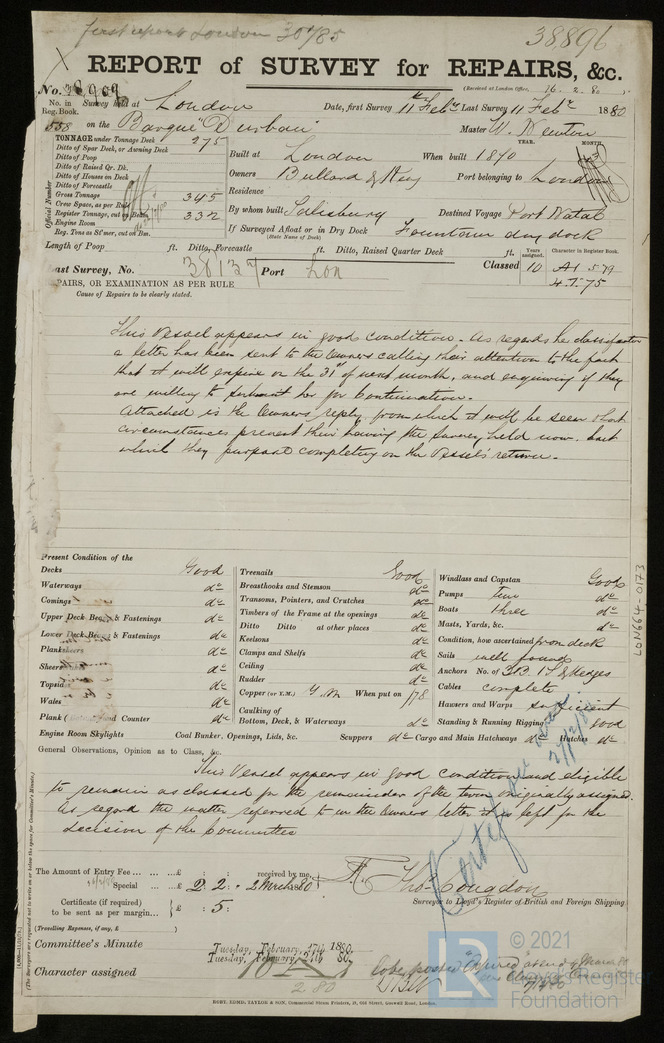 first report London 30/1/85
38,896
REPORT of SURVEY for REPAIRS, &c.
No. 38,909
(Received at London Office, 16. 2. 80
No. in Reg. Book. Survey held at London Date, first Survey 11th Feby Last Survey 11 Feby 1880
558 on the Barque "Durban" Master W. Newton
TONNAGE under Tonnage Deck 275
Ditto of Spar Deck, or Awning Deck
Ditto of Poop
Ditto of Raised Qr. Dk.
Ditto of Houses on Deck
Ditto of Forecastle
Gross Tonnage 345
Crew Space, as per Rule
Register Tonnage, cut on Beam 332
Engine Room
Reg. Tons as St'mer, cut on Bm.
Official Number
YEAR. MONTH.
Built at London When built 1870
Owners Bullard & King Port belonging to London
Residence
By whom built Salisbury Destined Voyage Port Natal
If Surveyed Afloat or in Dry Dock Fountain dry dock
(State Name of Dock)
Length of Poop ft. Ditto, Forecastle ft. Ditto, Raised Quarter Deck ft.
Years assigned. Character in Register Book.
Last Survey, No. 38137 Port Lon Classed 10 A1 5.79
4.T.75
PAIRS, OR EXAMINATION AS PER RULE
Cause of Repairs to be clearly stated.
This Vessel appears in good condition. As regards her classification
a letter has been sent to the Owners calling their attention to the fact
that it will expire on the 31st of next month, and enquiring if they
are willing to submit her for Continuation.
Attached is the Owners reply from which it will be seen that
circumstances prevent their having the survey held now. but
which they purpose completing on the Vessel's return.
Present Condition of the
Decks Good
Waterways do
Comings do
Upper Deck Beams & Fastenings do
Lower Deck Beams & Fastenings do
Planksheers do
Sheerstrakes do
Topsides do
Wales do
Plank Counter do
Engine Room Skylights
Treenails Good
Breasthooks and Stemson do
Transoms, Pointers, and Crutches do
Timbers of the Frame at the openings do
Ditto Ditto at other places do
Keelsons do
Clamps and Shelfs do
Ceiling do
Rudder do
Copper (or Y.M.) Y.M When put on /78
Caulking of
Bottom, Deck, & Waterways do
Coal Bunker, Openings, Lids, &c. Scuppers do Cargo and Main Hatchways do Hatches do
Windlass and Capstan Good
Pumps two do
Boats three do
Masts, Yards, &c. do
Condition, how ascertained from deck
Sails well found
Anchors No. of 3B. 1S & Kedges
Cables complete
Hawsers and Warps sufficient
Standing & Running Rigging good
LON994-0173
General Observations, Opinion as to Class, &c.
This Vessel appears in good condition and eligible
to remain as classed for the remainder of the term originally assigned.
As regard the matter referred to in the Owners letter it is left for the
decision of the Committee
The Amount of Entry Fee £ : : received by me,
Special £ 2. 2. 2 March 80
Certificate (if required) to be sent as per margin £ : 5 :
(Travelling Expenses, if any, £ )
Thos Congdon
Surveyor to Lloyd's Register of British and Foreign Shipping
Committee's Minute Tuesday, February, 17th 1880.
Tuesday, February, 24th 1880
Character assigned
2 80
(The Surveyors are requested not to write on or below the space for Committee's Minute.)
ROBT. EDMD. TAYLOR & SON, Commercial Steam Printers, 19, Old Street, Goswell Road, London.
LR
© 2021
Lloyd's Register
Foundation